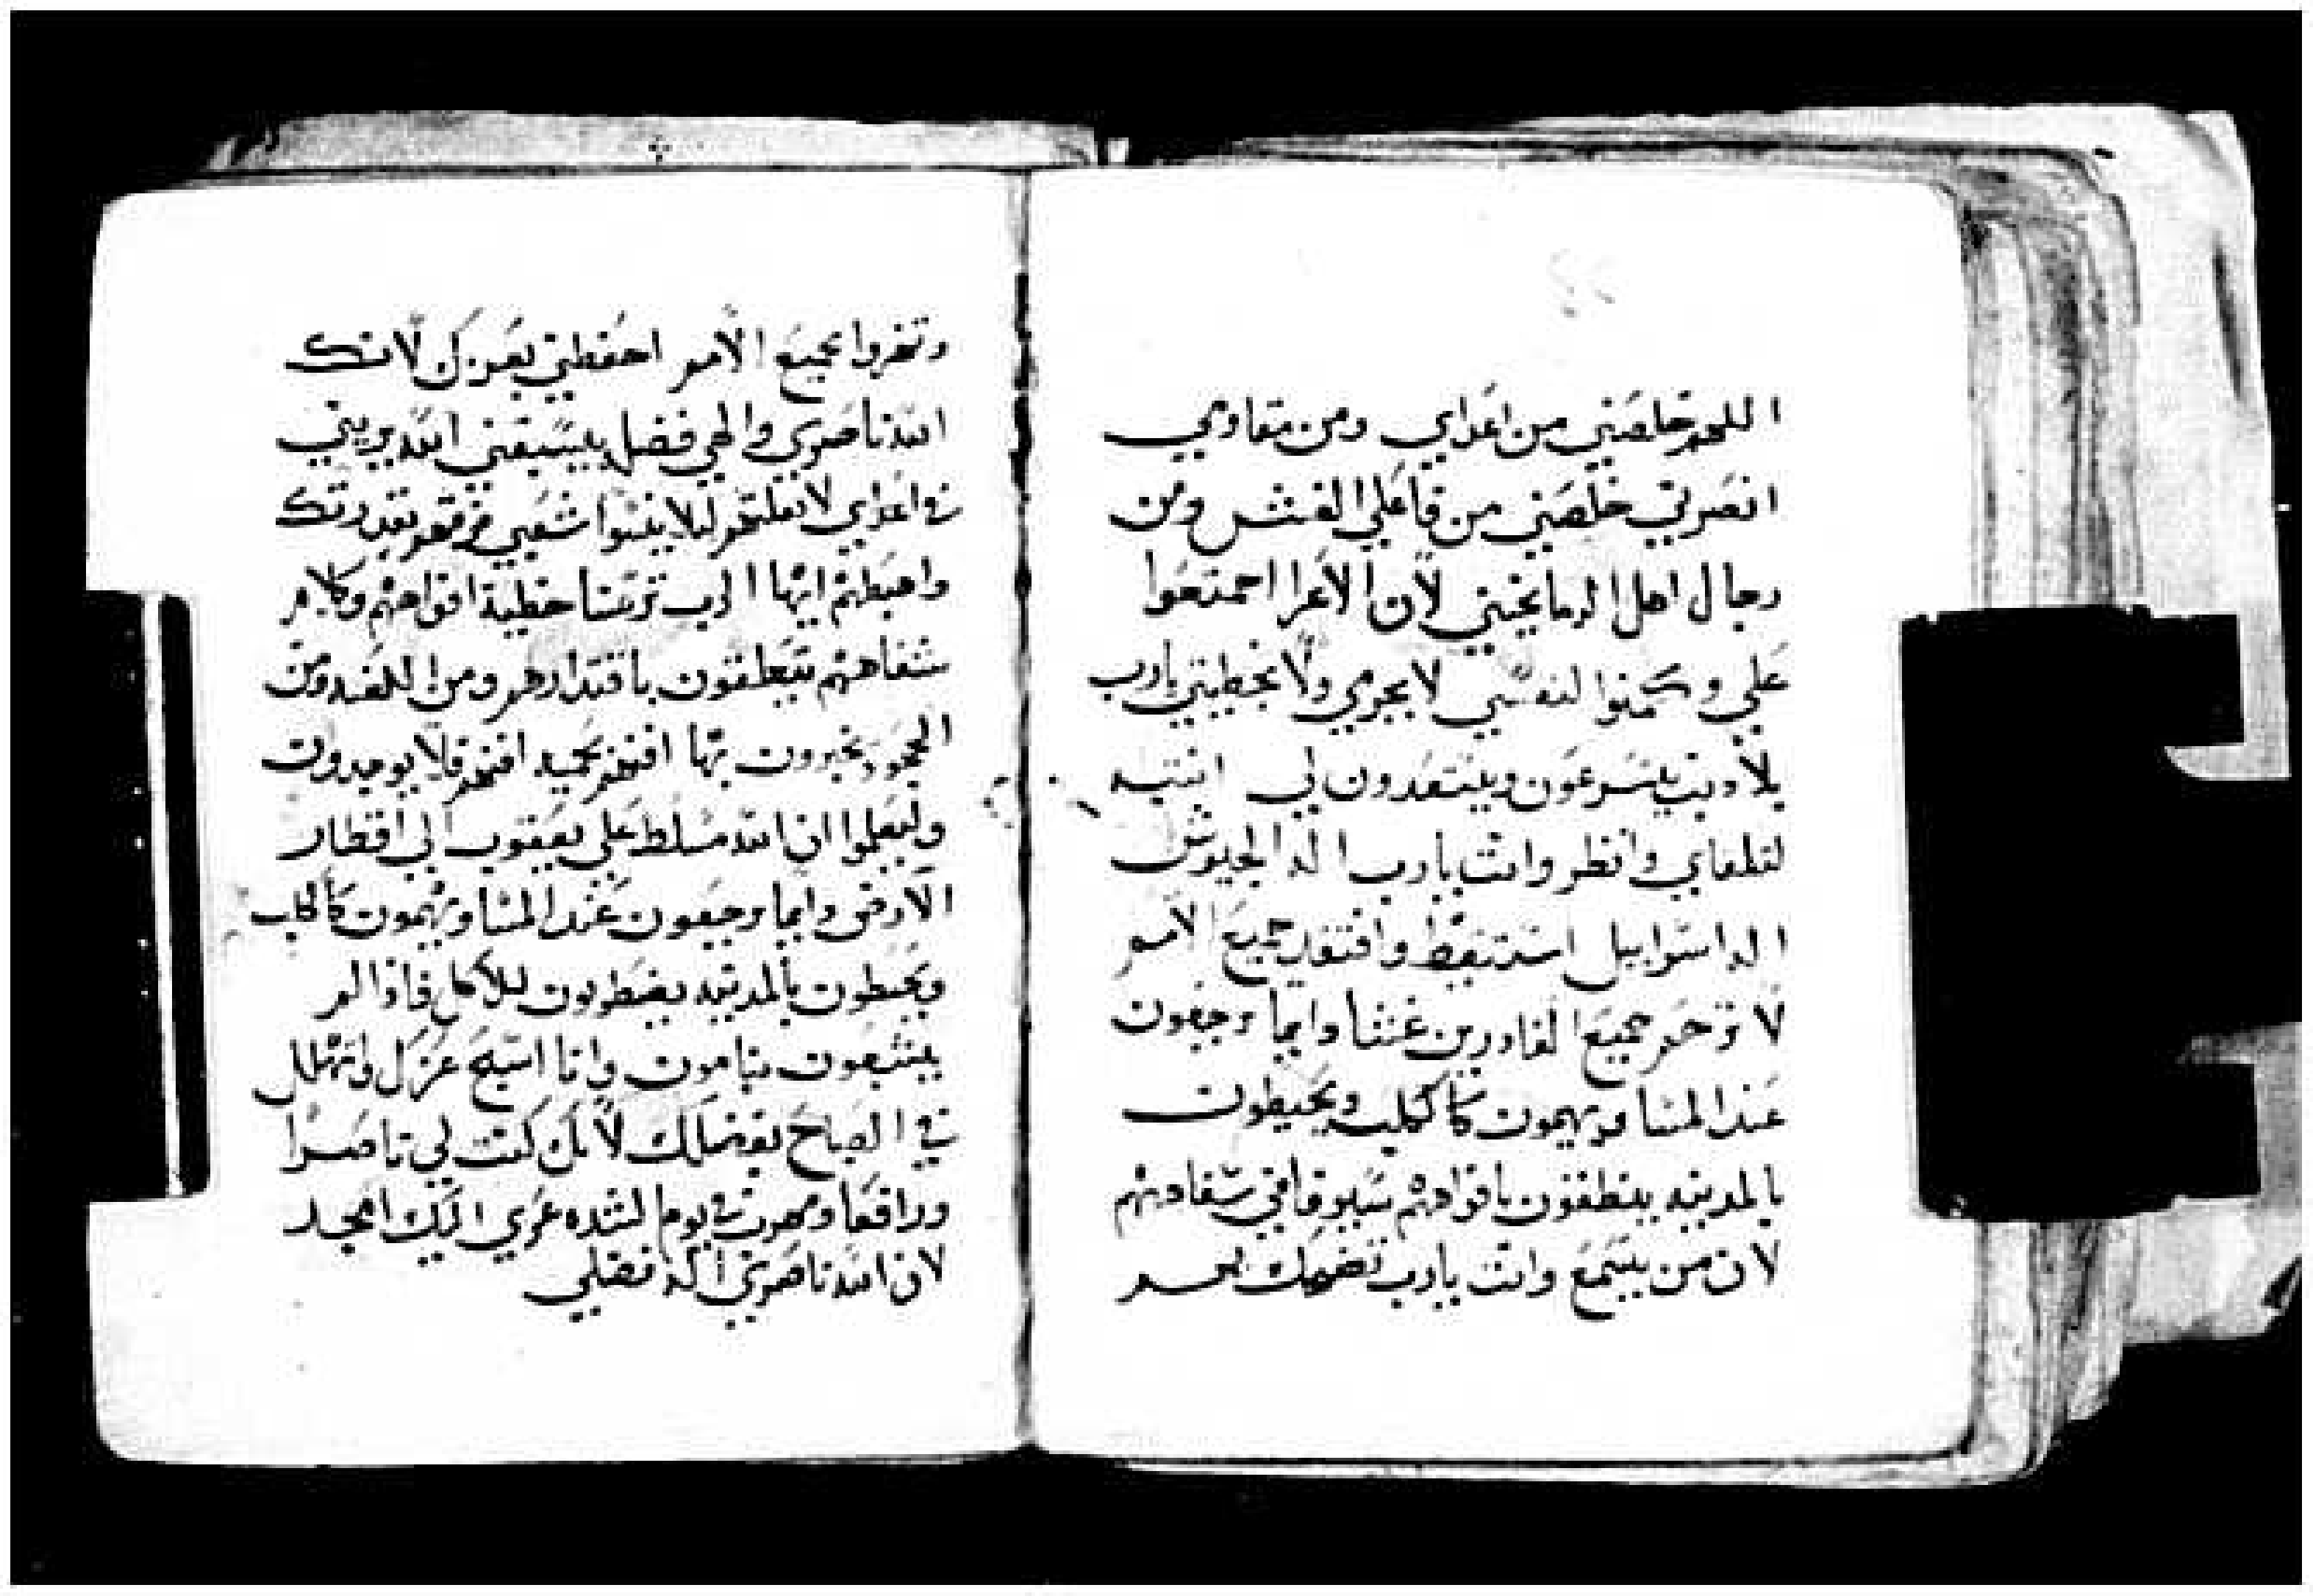 اللهم خلصني من اعداي ومن مقاومي
انصرني خلصني من فاعلي الغش ومن
رجال اهل الدما نجيني لان الاعزا اجمتعوا
علي وكمنوا لنفسي لا بجرمي ولا بخطيتي يارب
بلا ذنب يتسرعون ويستعدون لي انتبه
لتلقاي وانظر وانت يارب اله الجيوش
اله اسراييل استيقظ وافتقد جميع الامم
لا ترحم جميع الغادرين غشا دايما يرجعون
عند المسا ويهيمون كالكلب ويحيطون
بالمدينه ينطقون بافواههم سيوفا في شفاههم
لان من يسمع وانت يارب تضحك بهم
وتخزوا بجميع الامم احفظني بعزك لانك
الله ناصري والهي فضل يسبقني الله يريني
في اعداي لا تقتلهم ليلا ينسوا شعبي فرقهم بقدرتك
واهبطهم ايها الرب ترسنا خطية افواههم وكلام
شفاههم ينطقون باقتدارهم ومن اللعنه ومن
الجحود يخبرون بها افنهم بحميه افنهم فلا يوجدون
وليعلموا ان الله مسلط علي يعقوب الي اقطار
الارض دايما يرجعون عند المسا ويهيمون كالكلب
ويحيطون بالمدينه يضطربون للاكل فاذا لم
يشبعون ينامون وانا اسبح عزك واتهلل
في الصباح بفضلك لانك كنت لي ناصرا
ورافعا ومهربي في يوم لشده عزي اليك امجد
لان الله ناصري اله فضلي